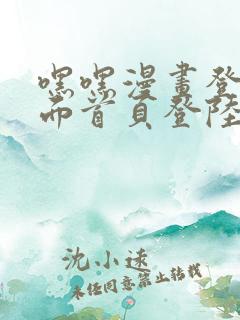 嘿嘿漫畫登
面首頁登陸
沈小逑
未经同意禁止转载